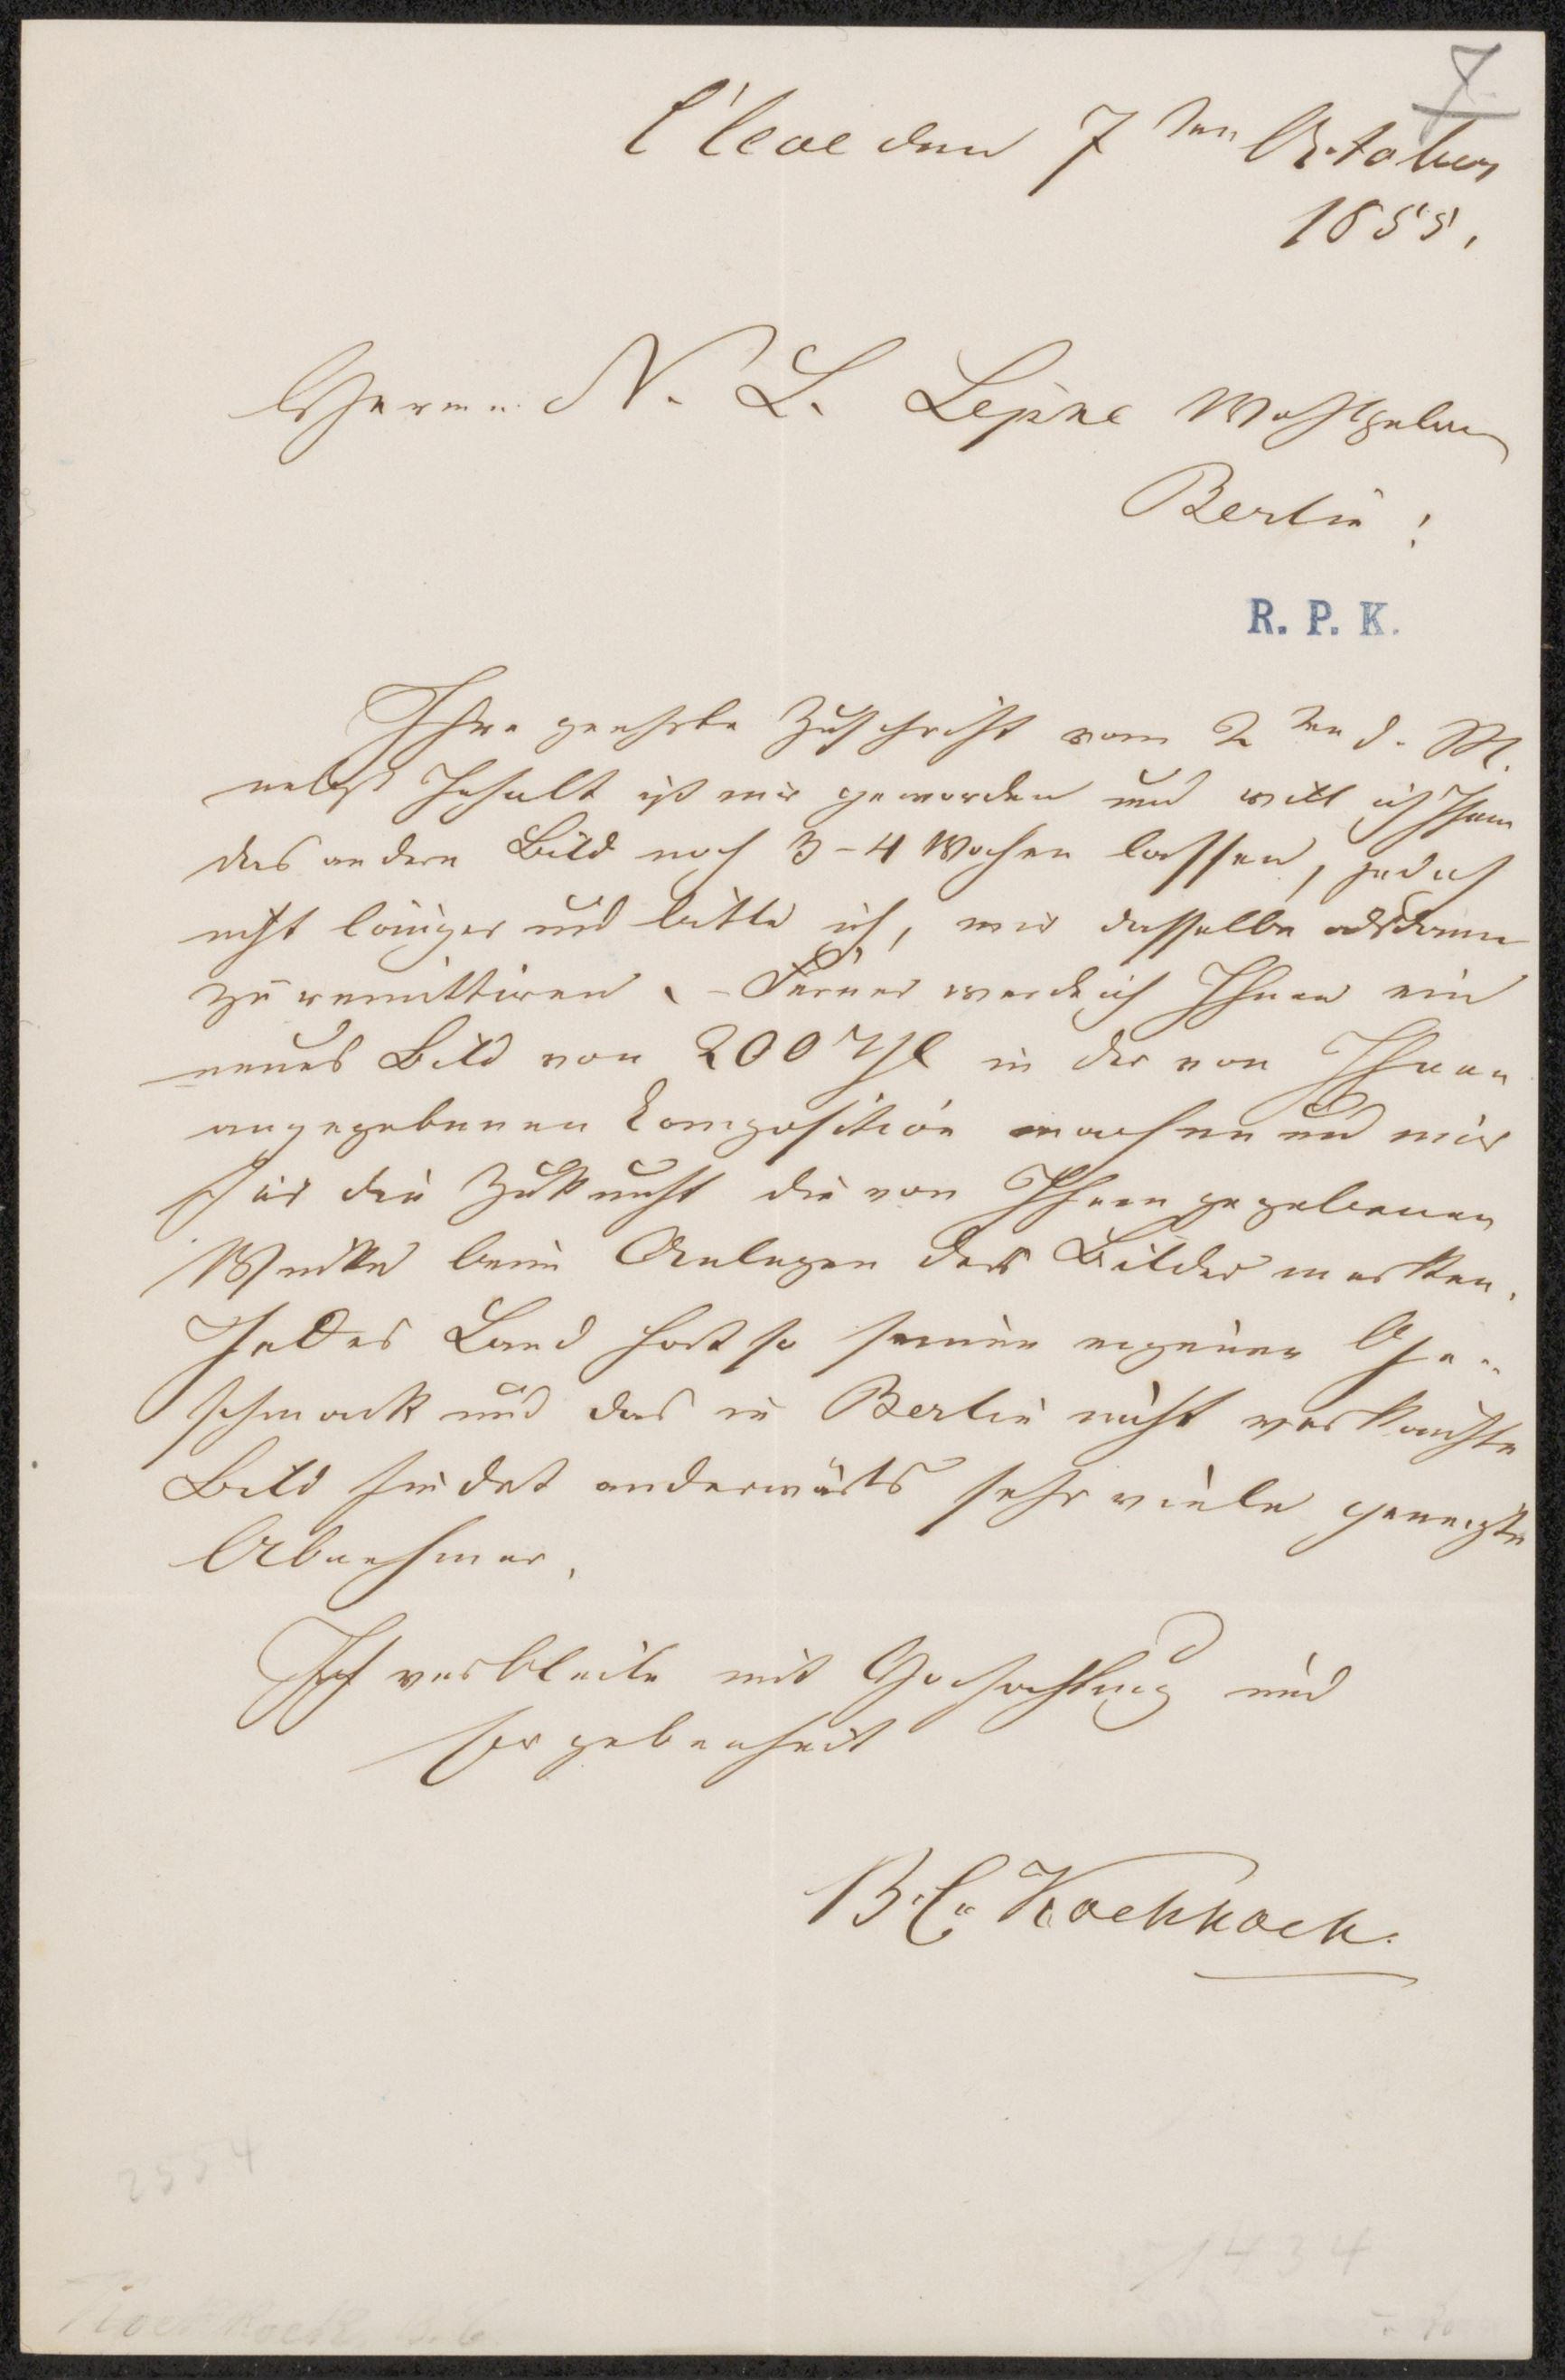 7.
Cleve den 7ten October
1855.
Herrn N. L. Lepke Wohlgeboren
Berlin!
R. P. K.
Ihre geehrte Zuschrift vom 2ten d. M.
nebst Inhalt ist mir geworden und will ich Ihnen
das andere Bild noch 3-4 Wochen lassen, jedoch
nicht länger und bitte ich, mir dasselbe alsdann
zu remittiren. - Ferner werde ich Ihnen ein
neues Bild von 200 in der von Ihnen
angegebenen Composition machen und mir
für die Zukunft die von Ihnen gegebenen
Winke beim Anlegen der Bilder merken.
Jedes Land hat so seinen eigenen Ge-
schmack und das in Berlin nicht verkaufte
Bild findet anderwärts sehr viele geneigte
Abnehmer.
Ich verbleibe mit Hochachtung und
Ergebenheit
B. C. Koekkoek.
2554
1434
Koekkoek, B. C.